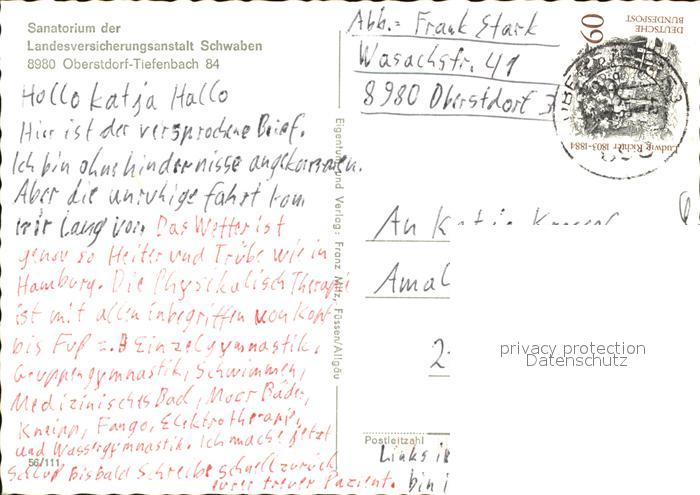 Sanatorium der
Landesversicherungsanstalt Schwaben
8980 Oberstdorf-Tiefenbach 84
Hallo Katja Hallo
Hier ist der versprochene Brief.
Ich bin ohne hindernisse angekommen.
Aber die unruhige fahrt kam
mir lang vor. Das Wetter ist
genau so Heiter und Trübe wie in
Hamburg. Die Physikalisch Therapi
ist mit allen inbegriffen von Kopf
bis Fuß z.B Einzelgymnastik,
Gruppengymnastik, Schwimmen,
Medizinisches Bad, Moor Bäder,
Kneipp, Fango, Elektrotherapie,
und Wassergymnastik. Ich mache jetzt
56/111
Schluß Bisbald Schreibe schnell zurück
eurer treuer Pazient.
Eigentum und Verlag: Franz Milz, Füssen/Allgäu
Abb.: Frank Stark
Wasachstr. 41
8980 Oberstdorf 3
60
DEUTSCHE
BUNDESPOST
Ludwig Richter 1803-1884
An Katja
Amal
2
privacy protection
Datenschutz
Postleitzahl
Links i
bin i